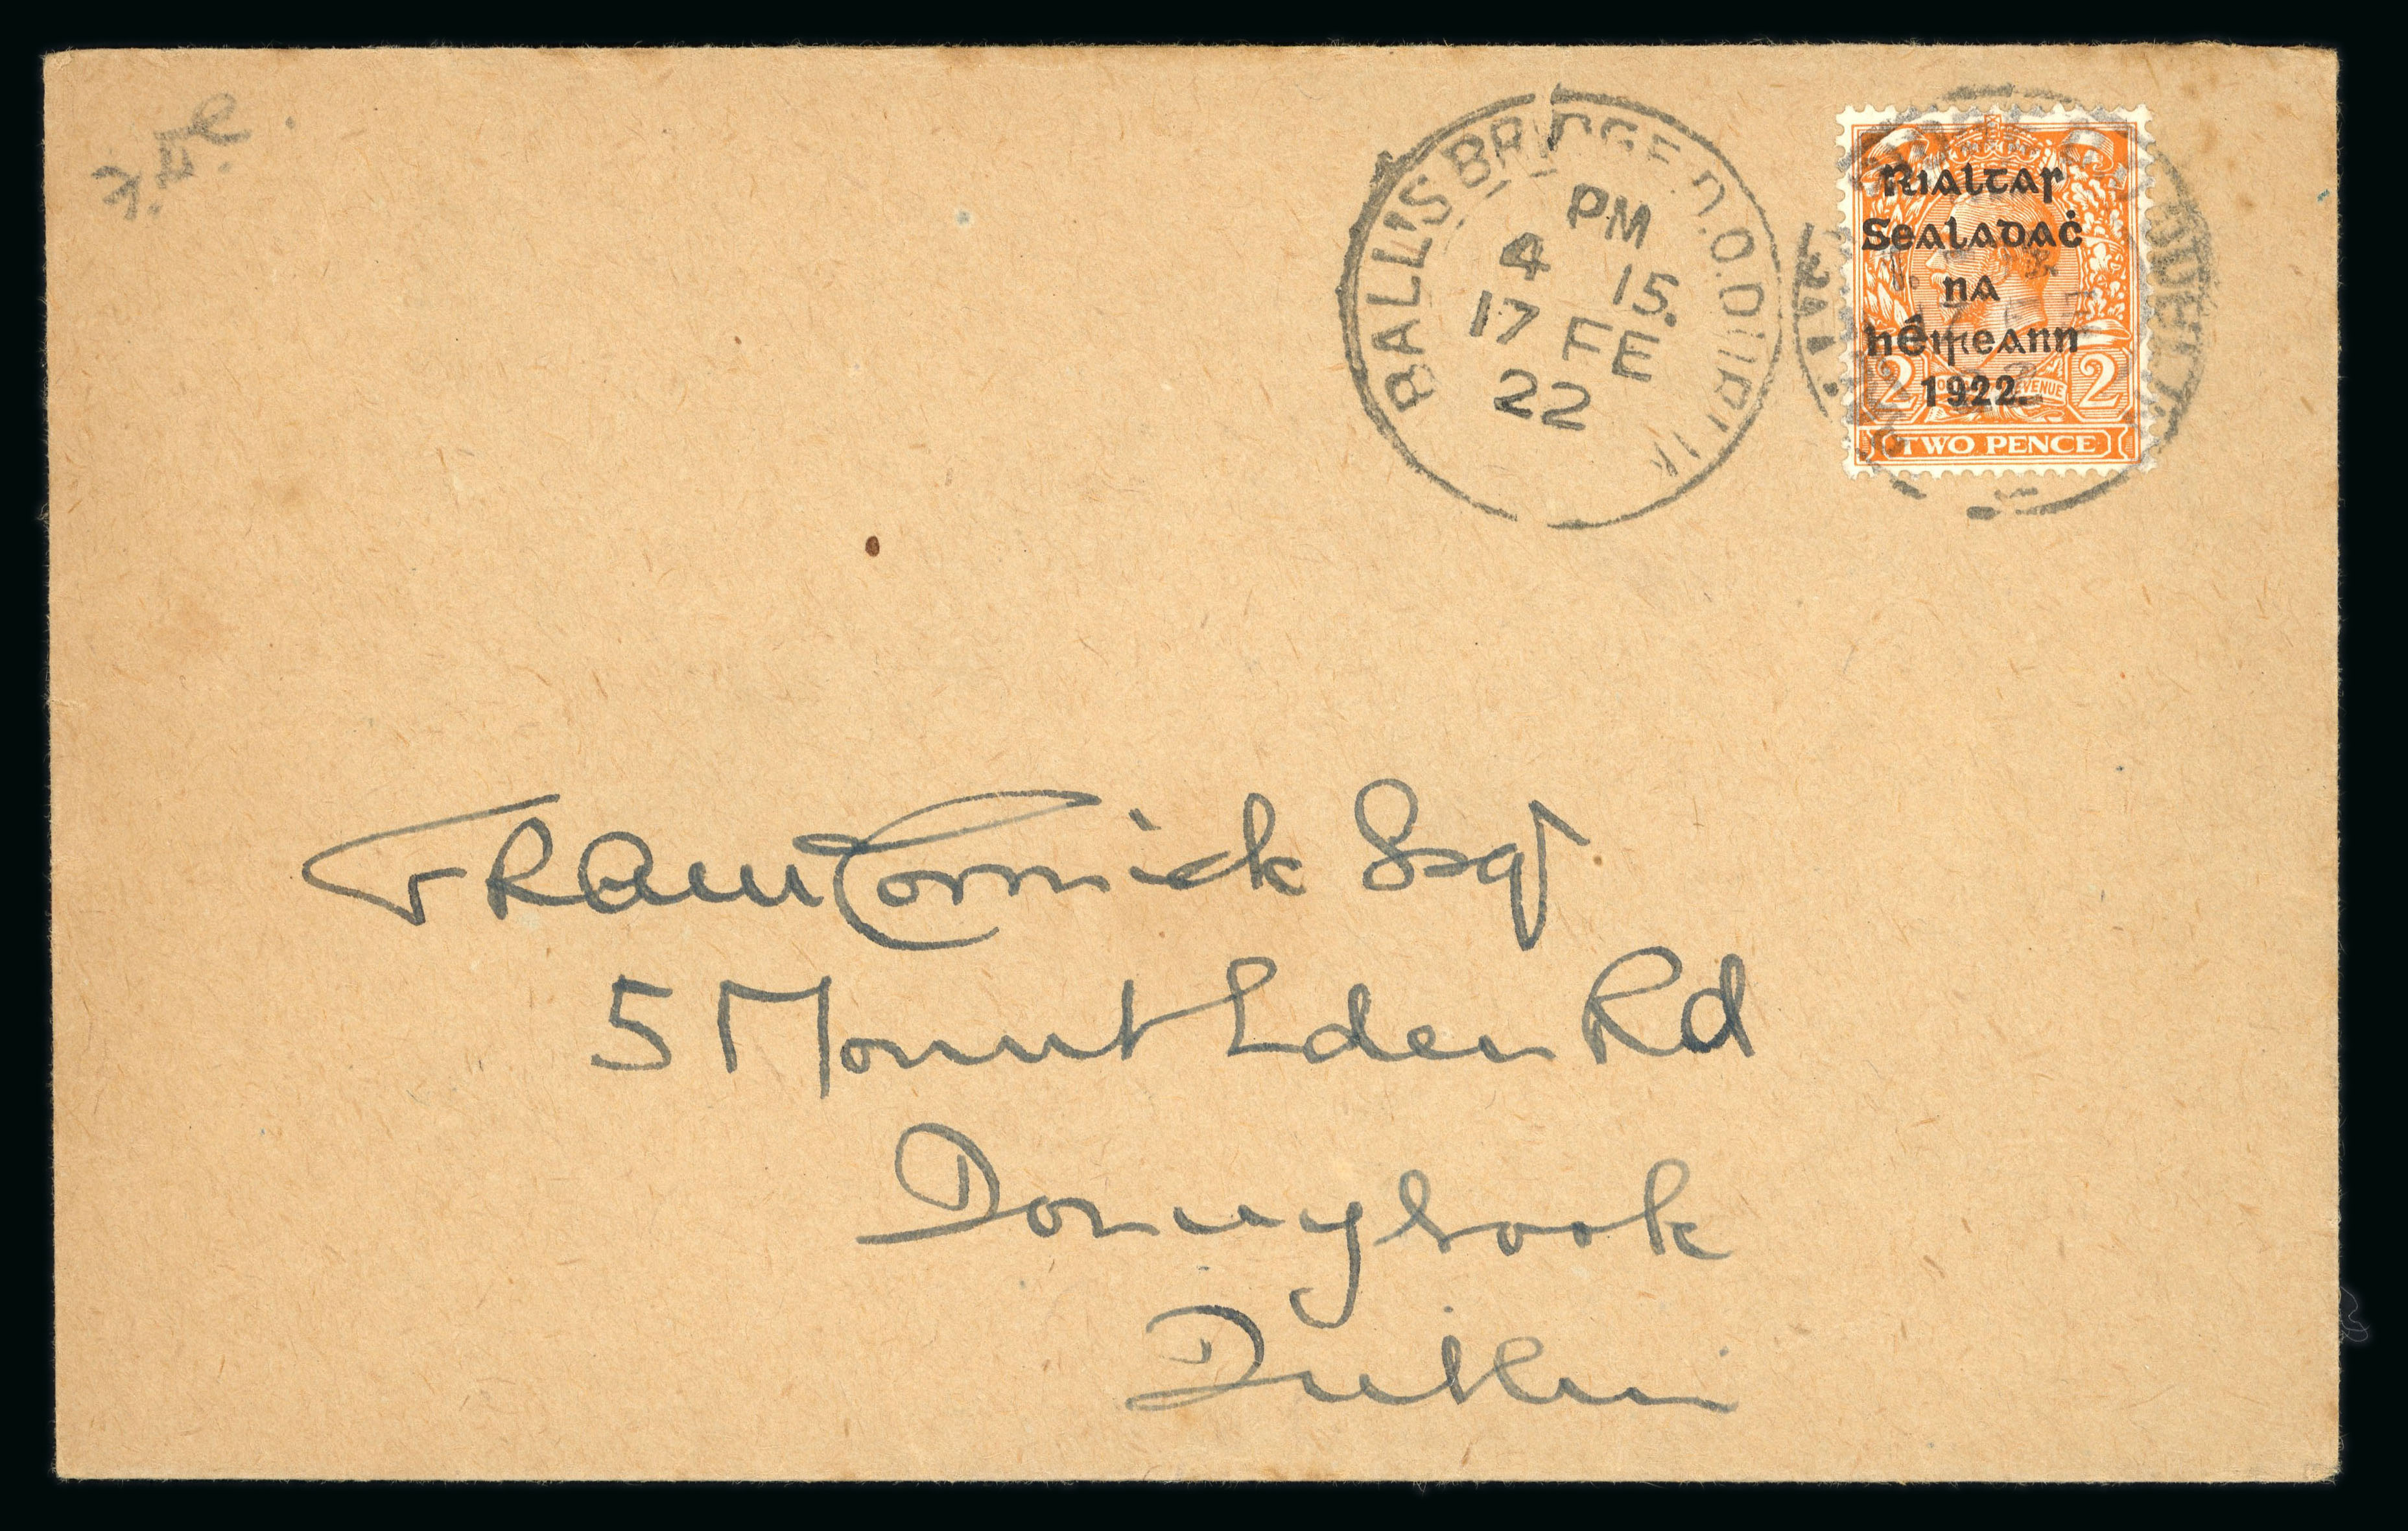 BALLSBRIDGE D.O. DUBLIN
PM
4 15
17 FE
22
Rialtas
Sealadaċ
na
hÉireann
1922.
2 2
TWO PENCE
F R A McCormick Esqr
5 Mount Eden Rd
Donnybrook
Dublin